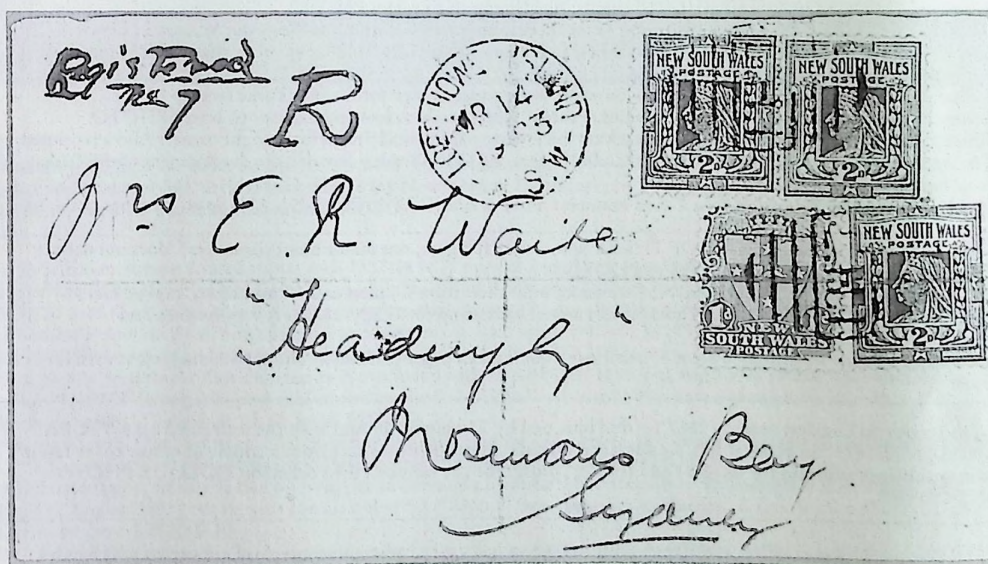 Registered
No 7
R
LORD HOWE ISLAND
MR 14
N.S.W
NEW SOUTH WALES
POSTAGE
2D
NEW SOUTH WALES
POSTAGE
2D
Mrs E. R. Waite
NEW SOUTH WALES
POSTAGE
2D
1D
NEW
SOUTH WALES
POSTAGE
"Headingly"
Mosmans Bay
Sydney